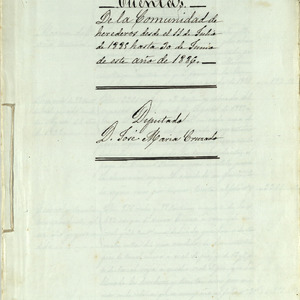 Cuentas
De la Comunidad de
herederos desde el 11 de Julio
de 1885 hasta 30 de Junio
de este año de 1886.
Diputado
D. José Maria Cruzado